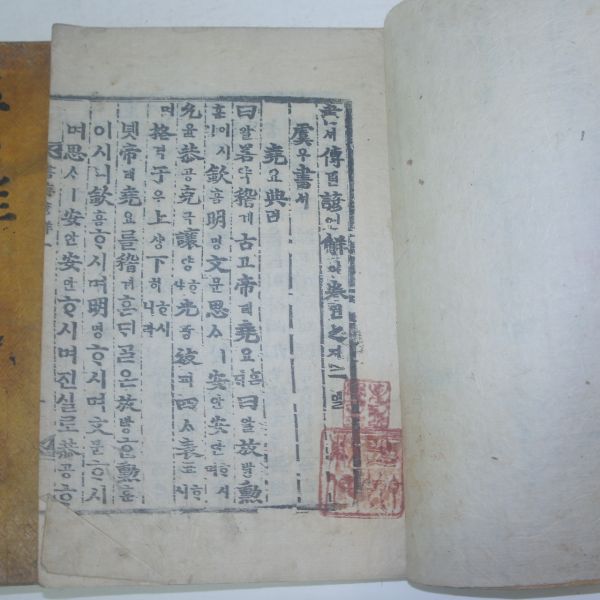 書셔傳뎐諺언解ᄒᆡ卷권之지一일
虞우書셔
堯요典뎐
曰왈若약稽계古고帝뎨堯요ᄒᆞᆫᄃᆡ曰왈放방勳
훈이시니欽흠明명文문思ᄉᆞㅣ安안安안ᄒᆞ시며
允윤恭공克극讓양ᄒᆞ샤光광被피四ᄉᆞ表표ᄒᆞ시
며格격于우上샹下하ᄒᆞ시니라
녯帝뎨堯요를稽계혼ᄃᆡᄀᆞᆯ온放방ᄒᆞᆫ勳훈
이시니欽흠ᄒᆞ시며明명ᄒᆞ시며文문ᄒᆞ시
며思ᄉᆞㅣ安안安안ᄒᆞ시며진실로恭공ᄒᆞ